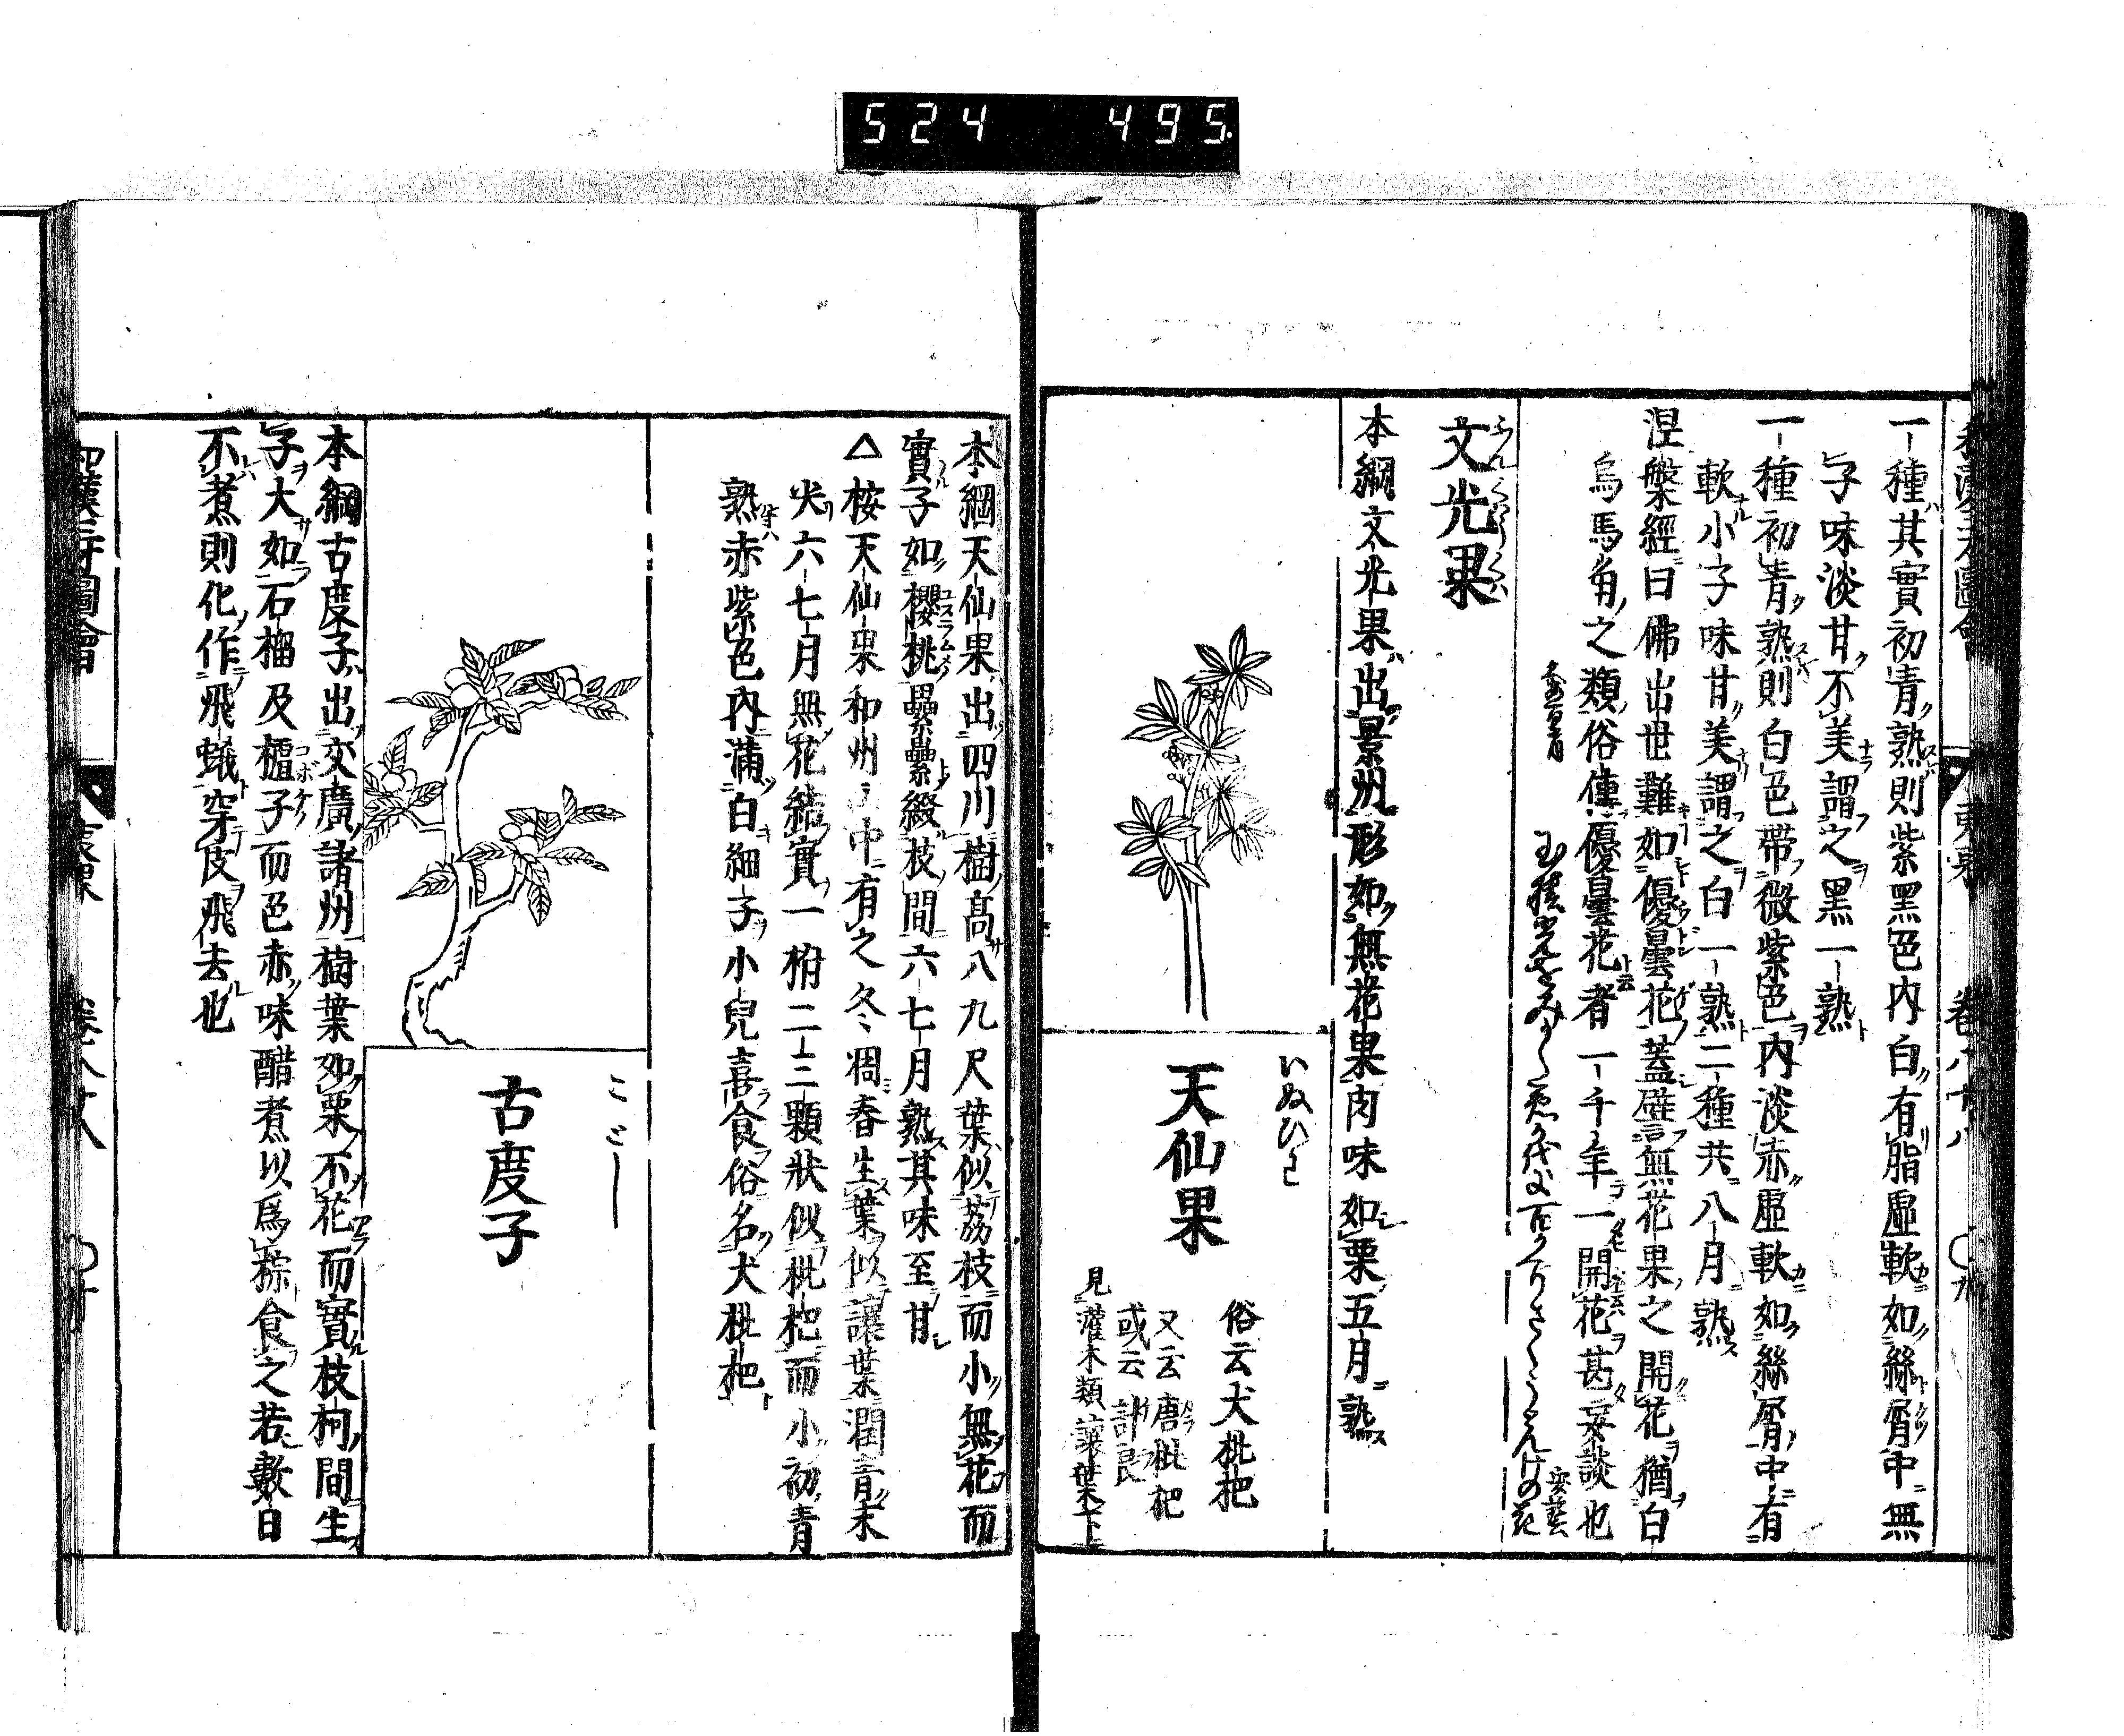 524 495
一種其實初青熟則紫黑色内白有脂虛軟如絲屑中無
子味淡甘不美謂之黑一熟
一種初青熟則白色帶微紫色内淡赤虛軟如絲屑中有
軟小子味甘美謂之白一熟二種共八月熟
涅槃經曰佛出世難如優曇花蓋譬言無花果之開花猶白
烏馬角之類俗傳優曇花者一千年一開花甚妄談也
文光果
ぶんくはうくは
本綱文光果出景州形如無花果肉味如栗五月熟
いぬびは
天仙果
俗云犬枇杷
又云唐枇杷
見灌木類讓葉下
本綱天仙果出四川樹高八九尺葉似荔枝而小無花而
實子如櫻桃纍纍綴枝間六七月熟其味至甘
△桉天仙果和州山中有之冬凋春生葉似讓葉潤青末
尖六七月無花結實一柎二三顆狀似枇杷而小初青
熟赤紫色内滿白細子小兒喜食俗名犬枇杷
こどし
古度子
本綱古度子出交廣諸州樹葉如栗不花而實枝柯間生
子大如石榴及樝子而色赤味醋煮以爲粽食之若數日
不煮則化作飛蟻穿皮飛去也